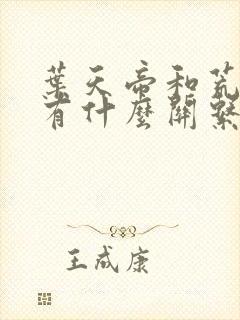 葉天帝和荒
有什麼關繫
王成康